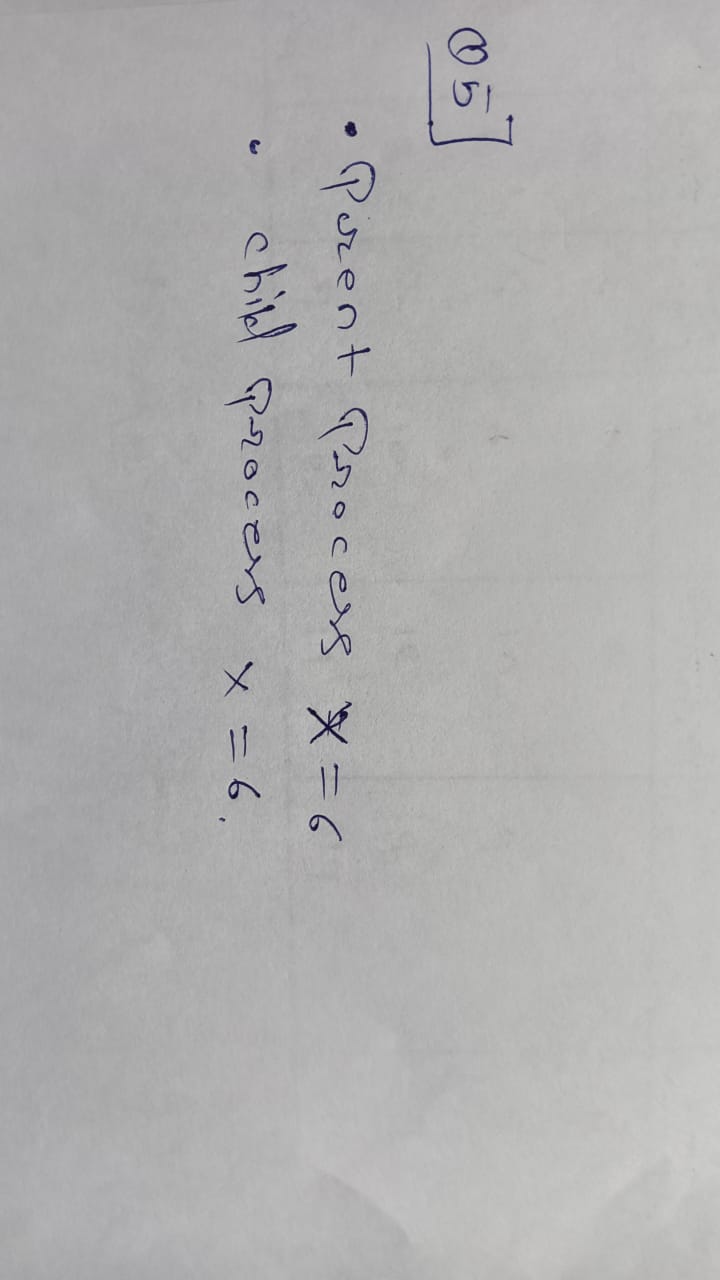 Q5
• Parent Process x = 6
• child Process x = 6.